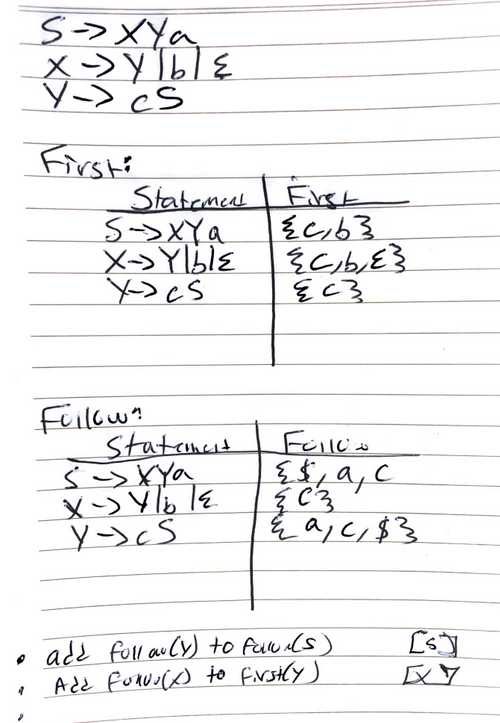 S -> XYa
X -> Y|b|ε
Y -> cS
First:
Statement First
S -> XYa {c,b}
X -> Y|b|ε {c,b,ε}
Y -> cS {c}
Follow:
Statement Follow
S -> XYa {$, a, c
X -> Y|b|ε {c}
Y -> cS {a, c, $}
• add follow(Y) to follow(S) [S]
• Add follow(X) to first(Y) [X]
•